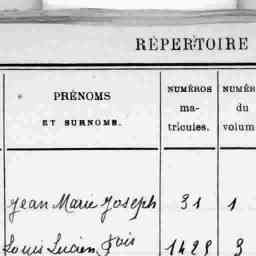 RÉPERTOIRE
PRÉNOMS
ET SURNOMS.
NUMÉROS
ma-
tricules.
NUMÉR
du
volum
Jean Marie Joseph 31 1
Louis Lucien Fois 1429 3